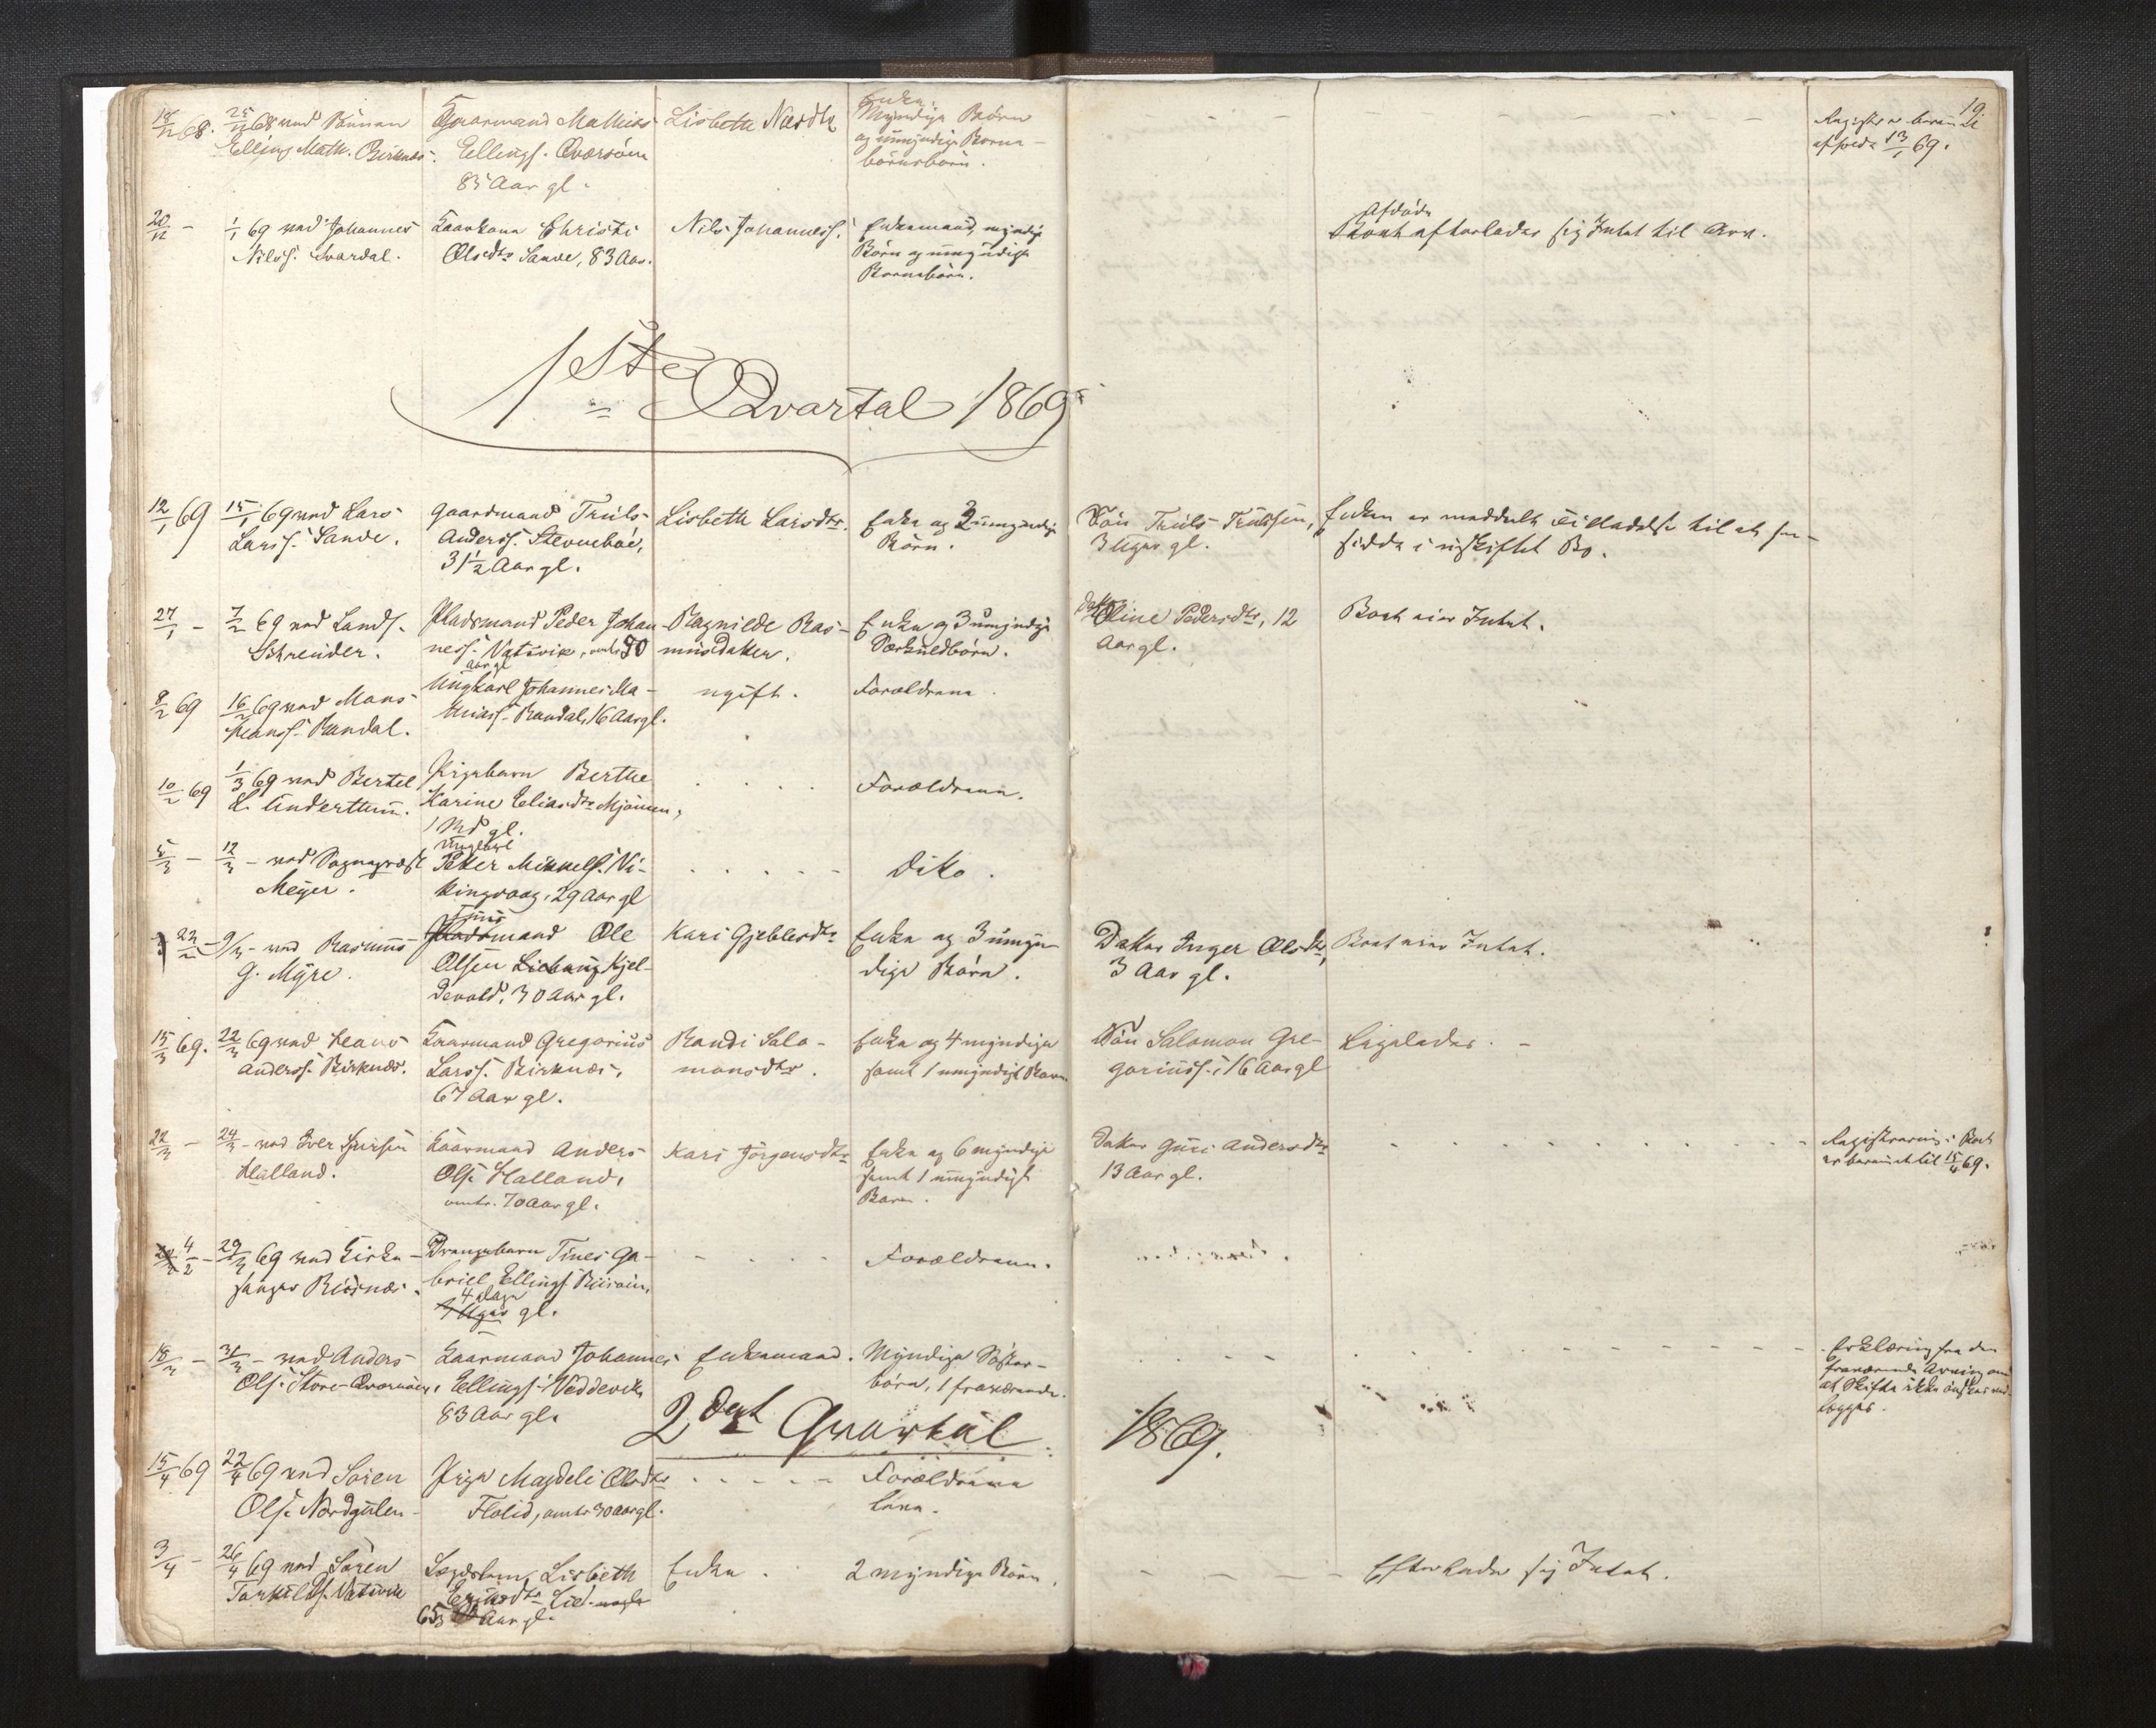 19
18/12 68. 25/12 68 ved Sønnen
Elling Math. Birknæs.
Kaarmand Mathias
Ellings. Qværsöen
85 Aar gl.
Lisbeth
Enke,
Myndige Børn
og umyndige Borne-
børnsbørn.
- - -
Registr er berammet
13/1 69.
20/12 - 1/1 69 ved Johannes
Nilss. Svardal.
Kaarkone Christi
Olsdtr Sande, 83 Aar.
Nils Johanness.
Enkemand, myndige
Börn og umyndige
Bornebörn.
Afdöde
efterlader sig Intet til Arv.
1ste Qvartal 1869
12/1 69 15/1 69 ved Lars
Larss. Sande.
Gaardmand Truls
Anderss. Stevneboe,
31½ Aar gl.
Lisbeth Larsdtr.
Enke og 2 umyndige
Börn.
Sön Truls Trulssen,
3 Uger gl.
Enken er meddelt Tilladelse til at hen-
sidde i uskiftet Bo.
27/1 - 7/2 69 ved Lands.
Schreuder.
Pladsmand Peder Johan-
ness. Vatsvik, omtr 70
aar gl
Ragnilde Ras-
musdatter.
Enke og 3 umyndige
Særkuldbörn.
Datter
Oline Pedersdtr, 12
Aar gl.
Boet eier Intet.
9/2 69 16/2 69 ved Mons
Monss. Randal.
Ungkarl Johannes Ma-
thiass. Randal, 16 Aar gl.
ugift.
Forældrene.
10/2 69 1/3 69 ved Bertel
L. Underthun.
Pigebarn Berthe
Karine Eliasdtr Mjömen,
1 Md gl.
- - - -
Forældrene.
5/3 - 12/3 - ved Sognepræst
Meyer.
Ungkarl
Peter Mikkels. Vi-
kingvaag, 29 Aar gl
- - - - -
dito.
22/2 - 9/3 - ved Rasmus
G. Myre.
Huus
Pladsmand Ole
Olsen Kjel-
devold, 30 Aar gl.
Kari Gjeblesdtr
Enke og 3 umyn-
dige Börn.
Datter Inger Olsdtr,
3 Aar gl.
Boet eier Intet.
15/3 69. 22/3 69 ved Hans
Anderss. Birknæs.
Kaarmand Gregorius
Larss. Birknæs,
67 Aar gl.
Randi Salo-
monsdtr.
Enke og 4 myndige
samt 1 umyndigt Barn
Sön Salomon Gre-
goriuss. 16 Aar gl
Ligeledes. -
22/3 - 24/3 - ved Iver Iversen
Halland.
Kaarmand Anders
Ols. Halland,
omtr. 70 Aar gl.
Kari Jörgensdtr
Enke og 6 myndige
samt 1 umyndigt
Barn.
Datter Guri Andersdtr
13 Aar gl.
- - - - - - -
Registrering i Boet
er berammet til 15/4 69.
4/2 - 29/3 69 ved Kirke-
sanger Risnæs.
Drengebarn Tines Ga-
briel Ellings. Risöen,
4 dage
Uger gl.
- - - -
Forældrene.
18/3 - 31/3 - ved Anders
Ols. Store-Qværnöen,
Kaarmand Johannes
Ellings. Veddevik,
83 Aar gl.
Enkemand.
Myndige Söster-
börn, 1 fraværende.
- - - - - - -
Erklæring fra den
fraværende Arving om
at Skifte ikke önskes ved-
lægges.
2det Qvartal 1869.
15/4 69 22/4 69 ved Sören
Ols. Nordgulen
Pige Magdeli Olsdtr
Flolid, omtr 30 aar gl.
- - - - -
Forældrene
leve.
3/4 - 26/4 69 ved Sören
Torkilds. Vatsvik
Lægdslem Lisbeth
Eriksdtr
65 Aar gl.
Enke.
2 myndige Börn.
- - - - -
Efterlader sig Intet.